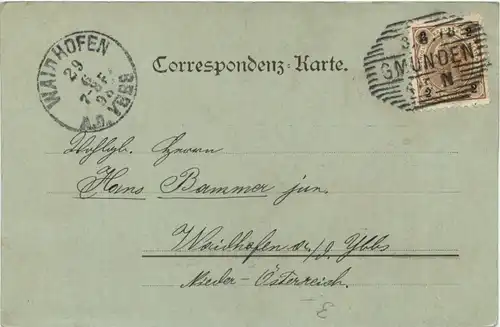 WAIDHOFEN
29
A.D. YBBS
Correspondenz-Karte.
GMUNDEN
N
2 2
Wohlgb. Herrn
Hans Bammer jun.
Waidhofen a/d. Ybbs
Nieder-Österreich.